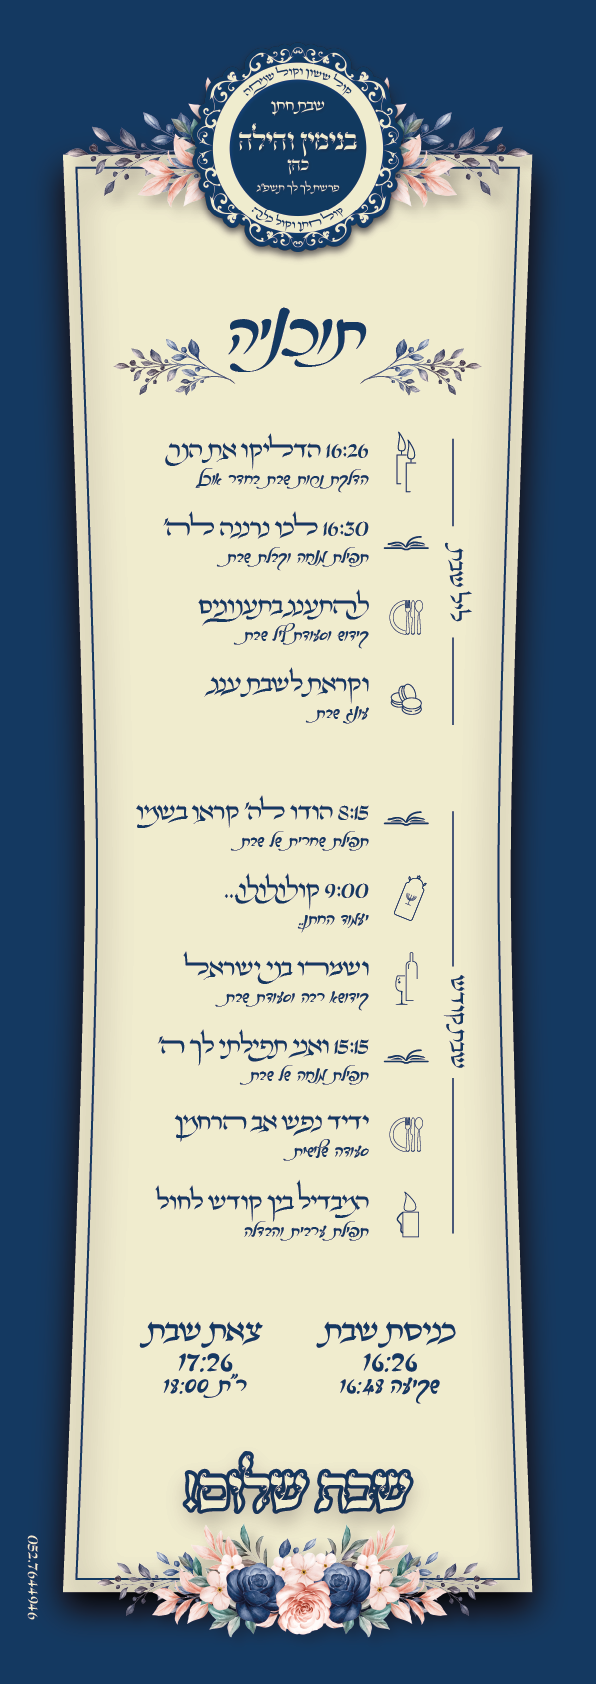 קול ששון וקול שמחה
שבת חתן
בנימין והילה
כהן
פרשת לך לך תשפ"ג
קול חתן וקול כלה
תוכניה
ליל שבת
16:26 הדליקו את הנר
הדלקת נרות שבת בחדר אוכל
16:30 לכו נרננה לה'
תפילת מנחה וקבלת שבת
להתענג בתענוגים
קידוש וסעודת ליל שבת
וקראת לשבת ענג
עונג שבת
שבת קודש
8:15 הודו לה' קראו בשמו
תפילת שחרית של שבת
9:00 קולולולו..
יעמוד החתן..
ושמרו בני ישראל
קידושא רבה וסעודת שבת
15:15 ואני תפילתי לך ה'
תפילת מנחה של שבת
ידיד נפש אב הרחמן
סעודה שלישית
המבדיל בין קודש לחול
תפילת ערבית והבדלה
כניסת שבת
16:26
שקיעה 16:48
צאת שבת
17:26
ר"ת 18:00
שבת שלום!
052.7644946